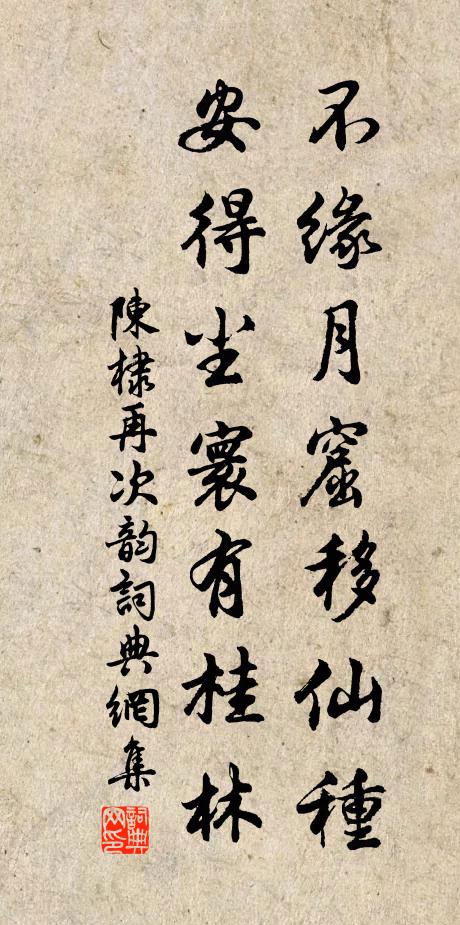 不緣月窟移仙種
安得尘寰有桂林
陳棣再次韵詞典網集
詞典网印